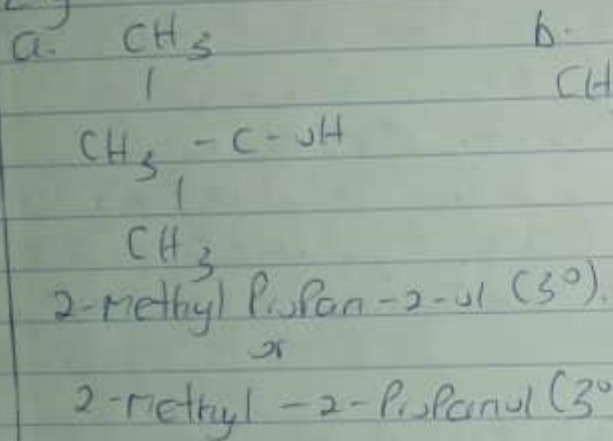 a. CH3 b.
| CH
CH3 - C - OH
|
CH3
2-Methyl Propan-2-ol (3°).
or
2-Methyl -2-Propanol (3°